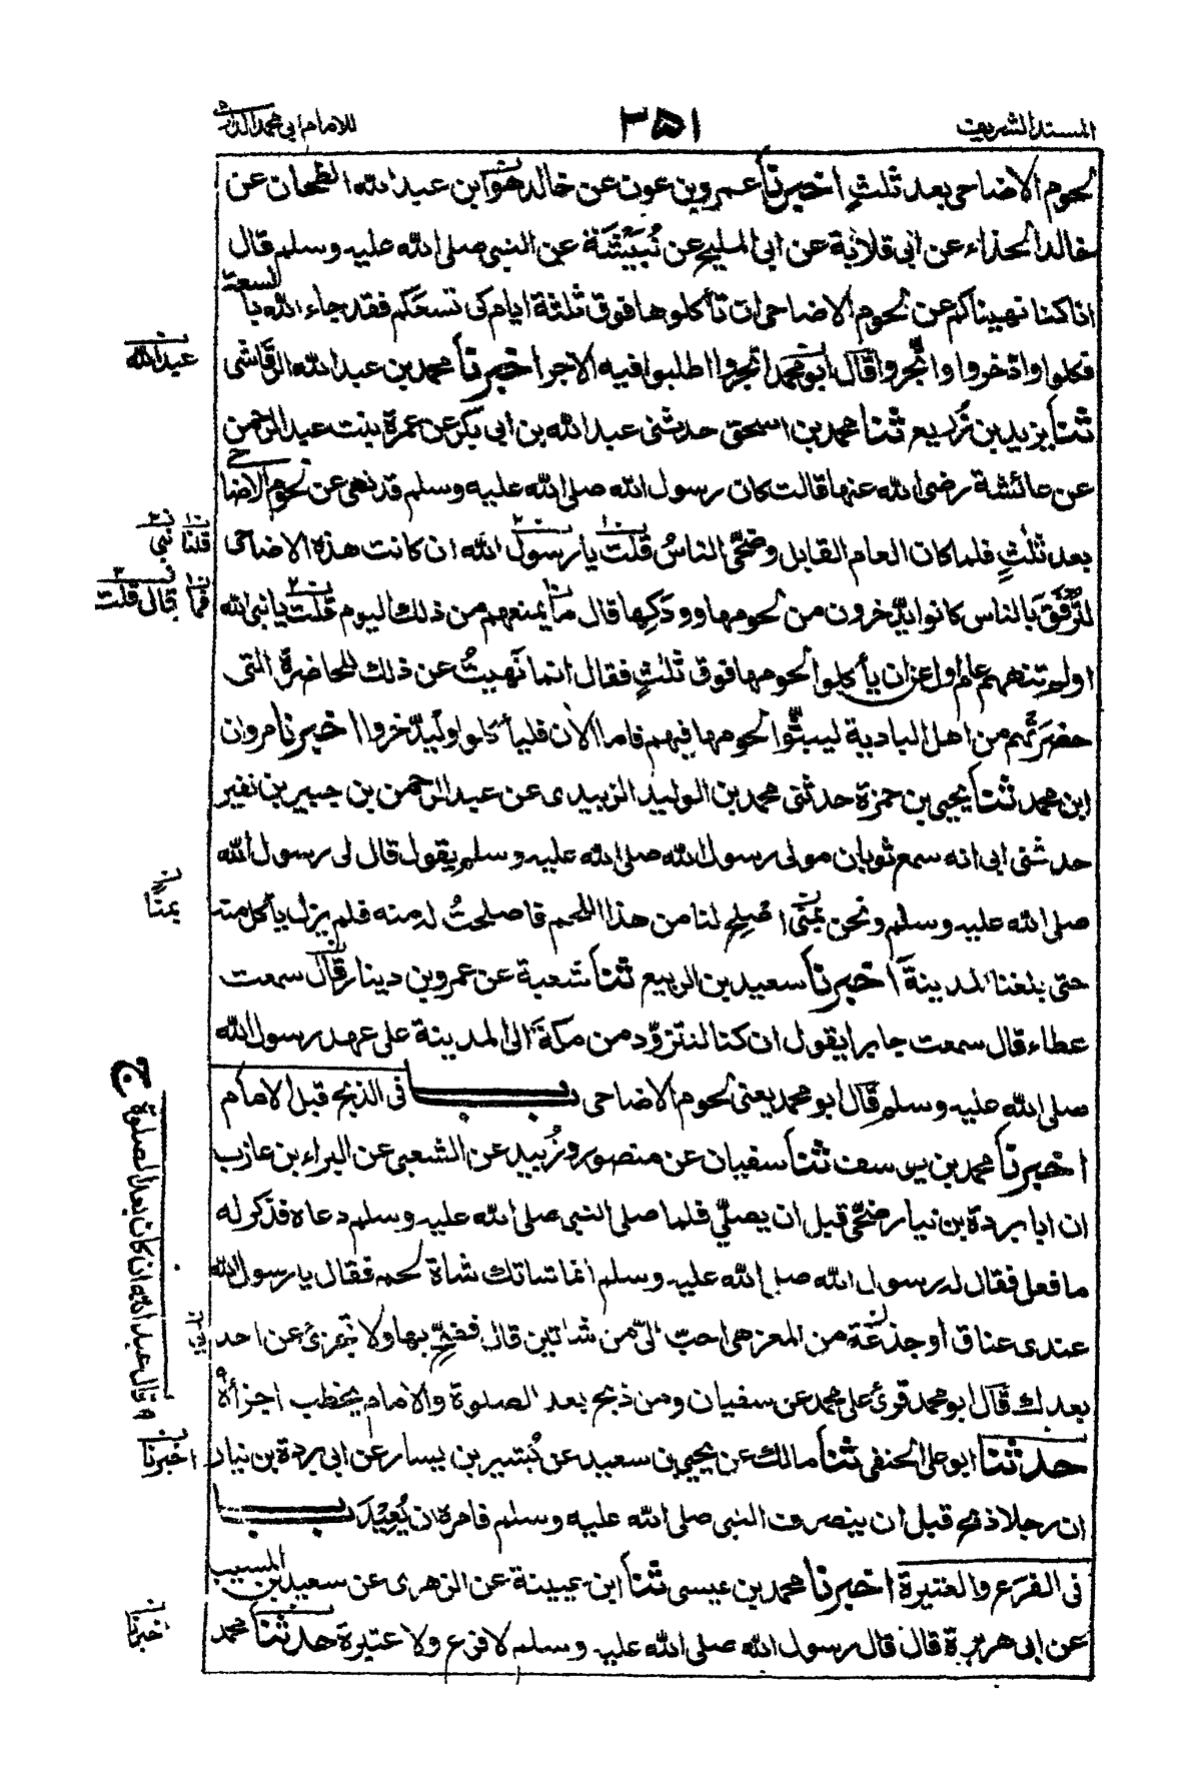 المسند الشريف ٢٥١ للامام ابي محمد الدارمي
لحوم الاضاحي بعد ثلثٍ اخبرنا عمرو بن عون عن خالد هو ابن عبد الله الطحان عن
خالد الحذاء عن ابي قلابة عن ابي المليح عن نُبَيْشَة عن النبي صلى الله عليه وسلم قال
انا كنا نهيناكم عن لحوم الاضاحي ان تأكلوها فوق ثلثة ايام كي تسعكم فقد جاء الله بالسعة
فكلوا وادّخروا وائتجروا قال ابو محمد ائتجروا اطلبوا فيه الاجر اخبرنا محمد بن عبد الله الرقاشي
ثنا يزيد بن زُريع ثنا محمد بن اسحق حدثني عبد الله بن ابي بكر عن عمرة بنت عبد الرحمن
عن عائشة رضي الله عنها قالت كان رسول الله صلى الله عليه وسلم قد نهى عن لحوم الاضاحي
بعد ثلثٍ فلما كان العام القابل وضحّى الناسُ قلت يا رسول الله ان كانت هذه الاضاحي
لَتُرْفِقُ بالناس كانوا يدّخرون من لحومها وودكِها قال ما يمنعهم من ذلك اليوم قلت يا نبي الله
اولم تنههم عام اول عن ان يأكلوا لحومها فوق ثلثٍ فقال انما نَهيتُ عن ذلك للحاضرة التي
حضرَتْهم من اهل البادية ليبثّوا لحومها فيهم فاما الآن فليأكلوا وليدّخروا اخبرنا مروان
ابن محمد ثنا يحيى بن حمزة حدثني محمد بن الوليد الزبيدي عن عبد الرحمن بن جبير بن نفير
حدثني ابي انه سمع ثوبان مولى رسول الله صلى الله عليه وسلم يقول قال لي رسول الله
صلى الله عليه وسلم ونحن بمنى اصلِح لنا من هذا اللحم فاصلحتُ له منه فلم يزل يأكل منه
حتى بلغنا المدينةَ اخبرنا سعيد بن الربيع ثنا شعبة عن عمرو بن دينار قال سمعت
عطاء قال سمعت جابرا يقول ان كنا لنتزوّد من مكةَ الى المدينة على عهد رسول الله
صلى الله عليه وسلم قال ابو محمد يعني لحوم الاضاحي باب في الذبح قبل الامام
اخبرنا محمد بن يوسف ثنا سفيان عن منصور وزُبيد عن الشعبي عن البراء بن عازب
ان ابا بردة بن نيار ضحّى قبل ان يصلّي فلما صلى النبي صلى الله عليه وسلم دعاه فذكر له
ما فعل فقال له رسول الله صلى الله عليه وسلم انما شاتك شاة لحم فقال يا رسول الله
عندي عناق او جذعة من المعز هي احبّ اليّ من شاتين قال فضحّ بها ولا تجزئ عن احد
بعدك قال ابو محمد قرئ على محمد عن سفيان ومن ذبح بعد الصلوة والامام يخطب اجزأه
حدثنا ابو علي الحنفي ثنا مالك عن يحيى بن سعيد عن بُشير بن يسار عن ابي بردة بن نيار
ان رجلا ذبح قبل ان ينصرف النبي صلى الله عليه وسلم فامره ان يُعِيْدَ باب
في الفرَع والعتيرة اخبرنا محمد بن عيسى ثنا ابن عيينة عن الزهري عن سعيد بن المسيب
عن ابي هريرة قال قال رسول الله صلى الله عليه وسلم لا فرع ولا عتيرة حدثنا محمد
عبد الله
قلنا نبي
فما قال قلت
قال عبد الله ان كان بعد الصلوة
اخبرنا